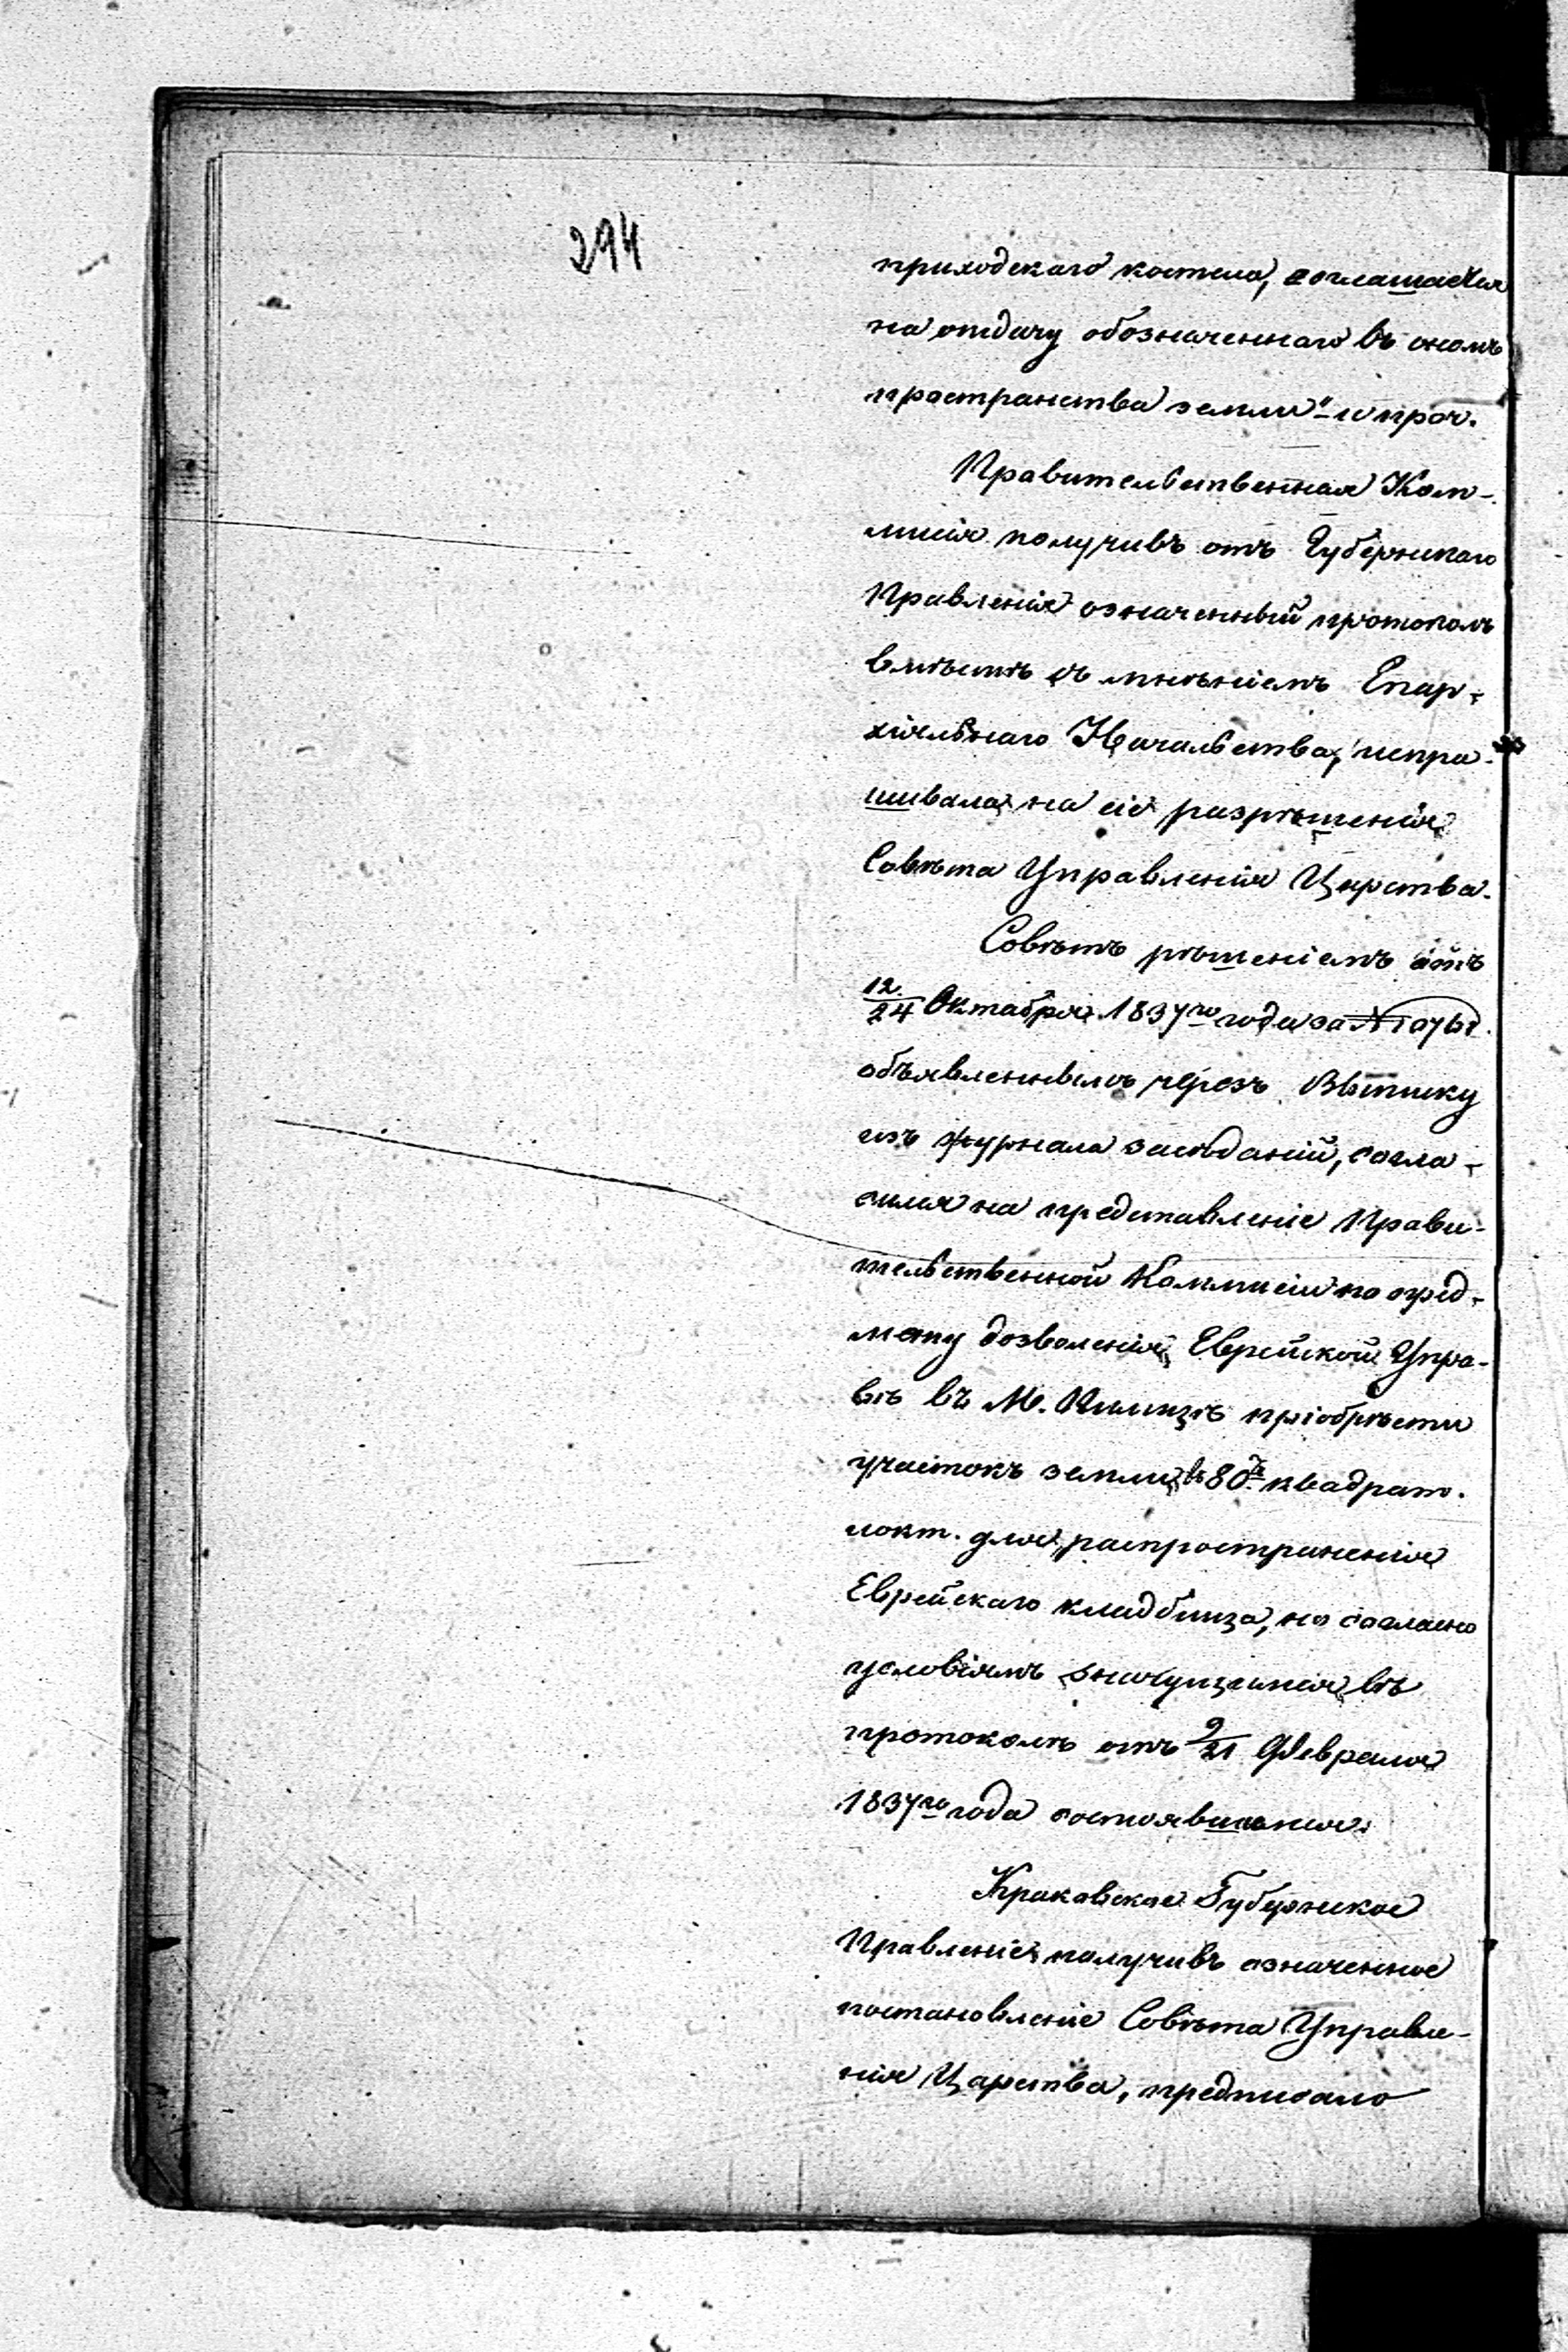 294
приходскаго костела, соглашается
на отдачу обозначеннаго въ ономъ
пространства земли" и проч.
Правительственная Ком-
мисія получивъ отъ Губернскаго
Правленія означенный протоколъ
вмѣстѣ съ мнѣніемъ Епар-
хіяльнаго Начальства, испра-
шивала на сіе разрѣшенія
Совѣта Управленія Царства.
Совѣтъ рѣшеніемъ отъ
12/24 Октября 1837го года за №
объявленнымъ чрезъ Выписку
изъ журнала засѣданій, согла-
сился на представленіе Прави-
тельственной Коммисіи по пред-
мету дозволенія Еврейской Упра-
вѣ въ М. Пилицѣ пріобрѣсти
участокъ земли въ 80ть квадрат.
локт. для распространенія
Еврейскаго кладбища, но согласно
условіямъ значущимся въ
протоколѣ отъ 9/21 Февраля
1837го года состоявшемся.
Краковское Губернское
Правленіе получивъ означенное
постановленіе Совѣта Управле-
нія Царства, предписало